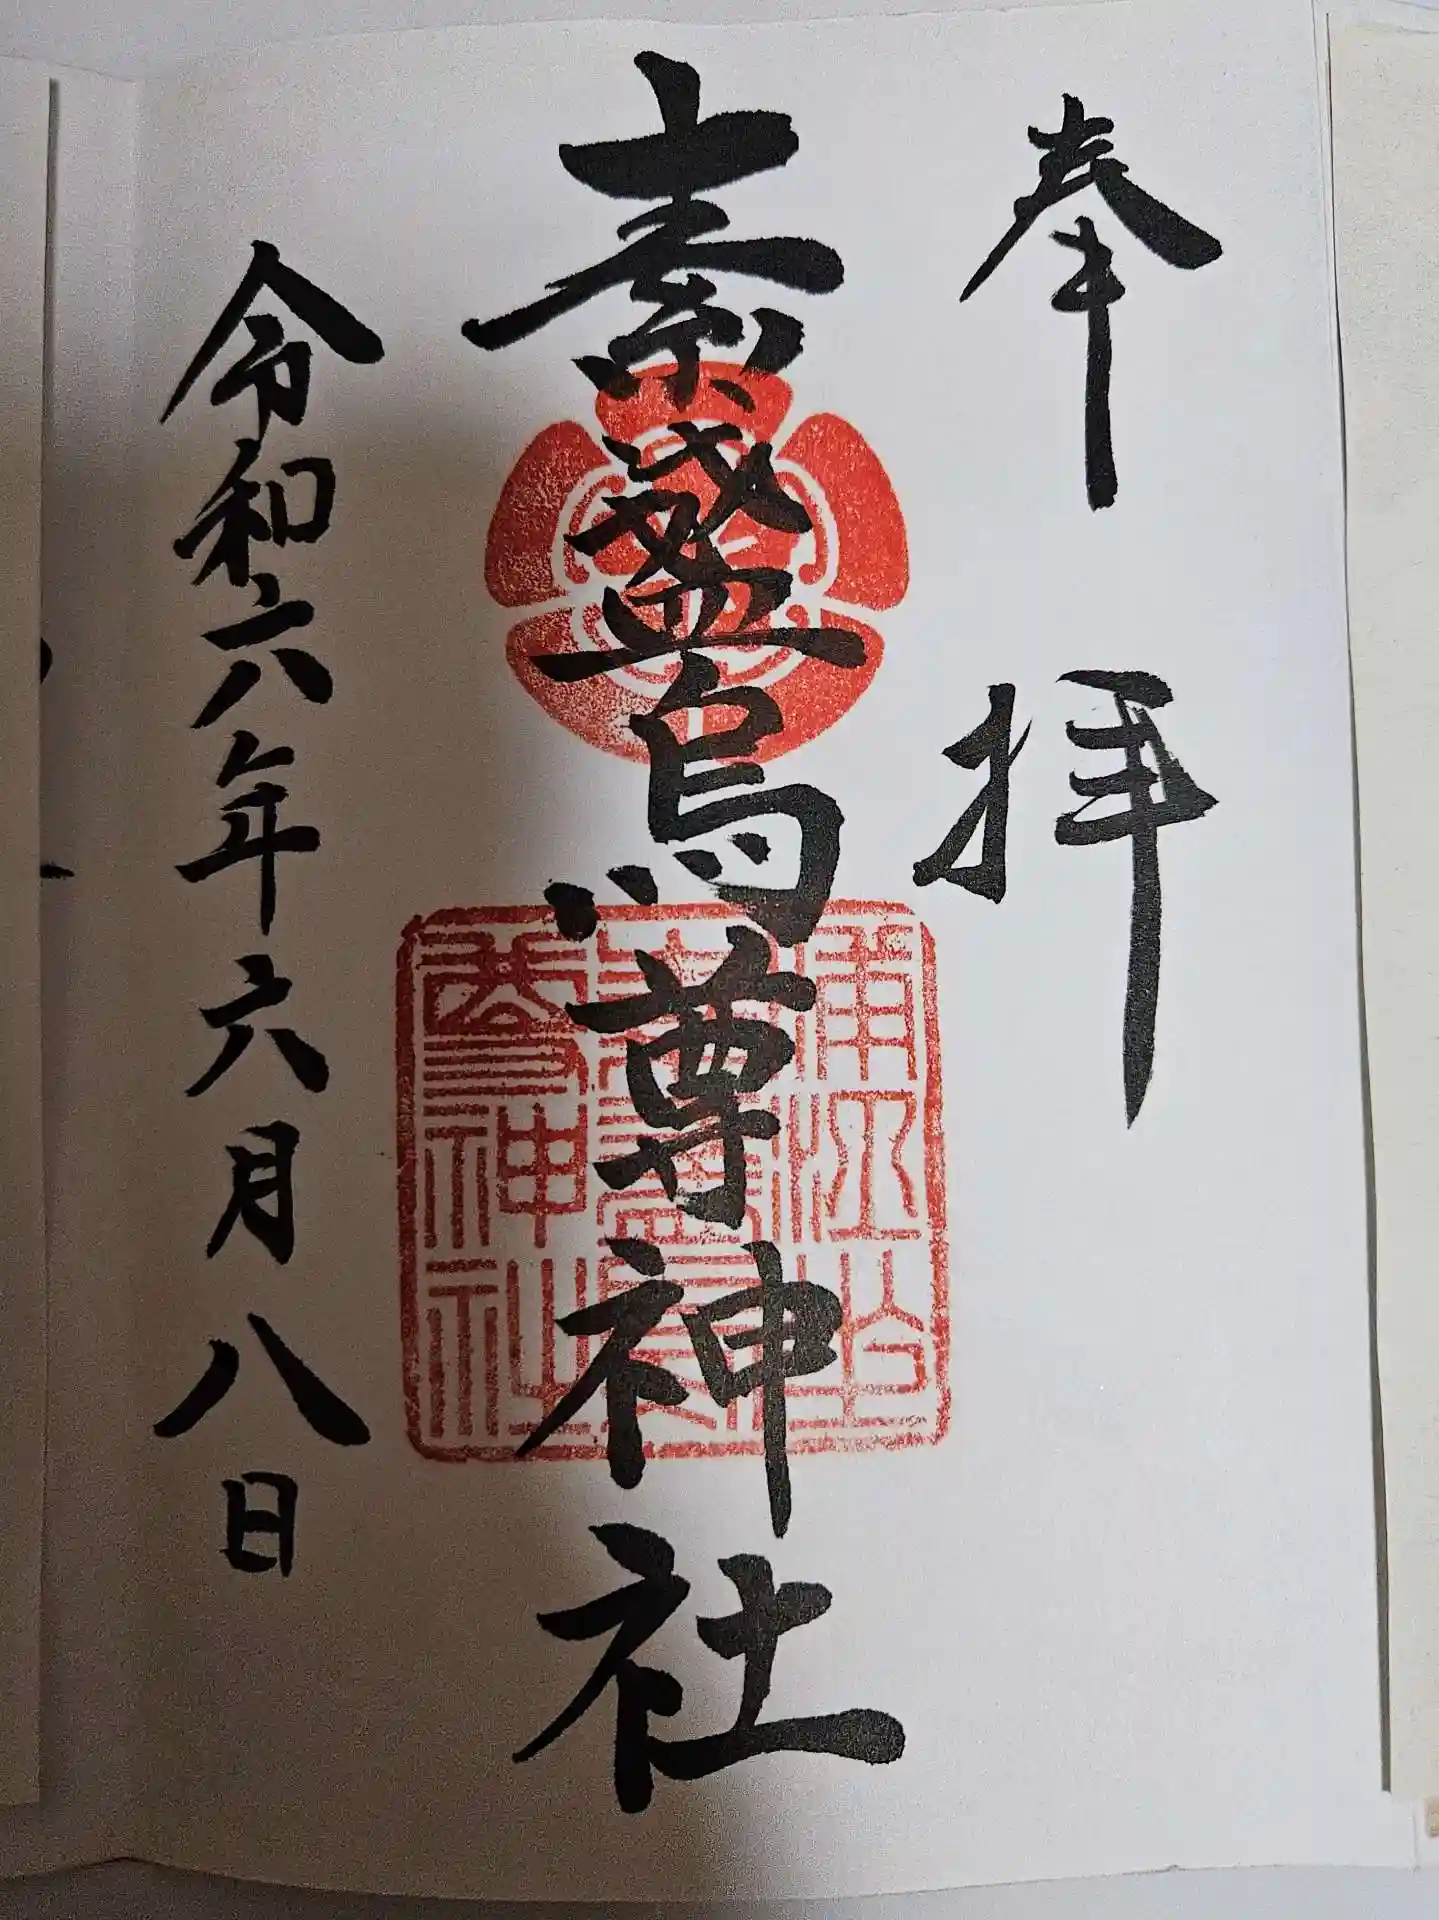 奉拝
素盞烏尊神社
令和六年六月八日
浦江
素盞烏
尊神社